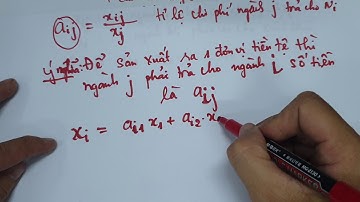 aij = xij / xj tỉ lệ chi phí ngành j trả cho Ni
ý nghĩa: Để sản xuất ra 1 đơn vị tiền tệ thì
ngành j phải trả cho ngành i số tiền
là aij
xi = ai1 . x1 + ai2 . x